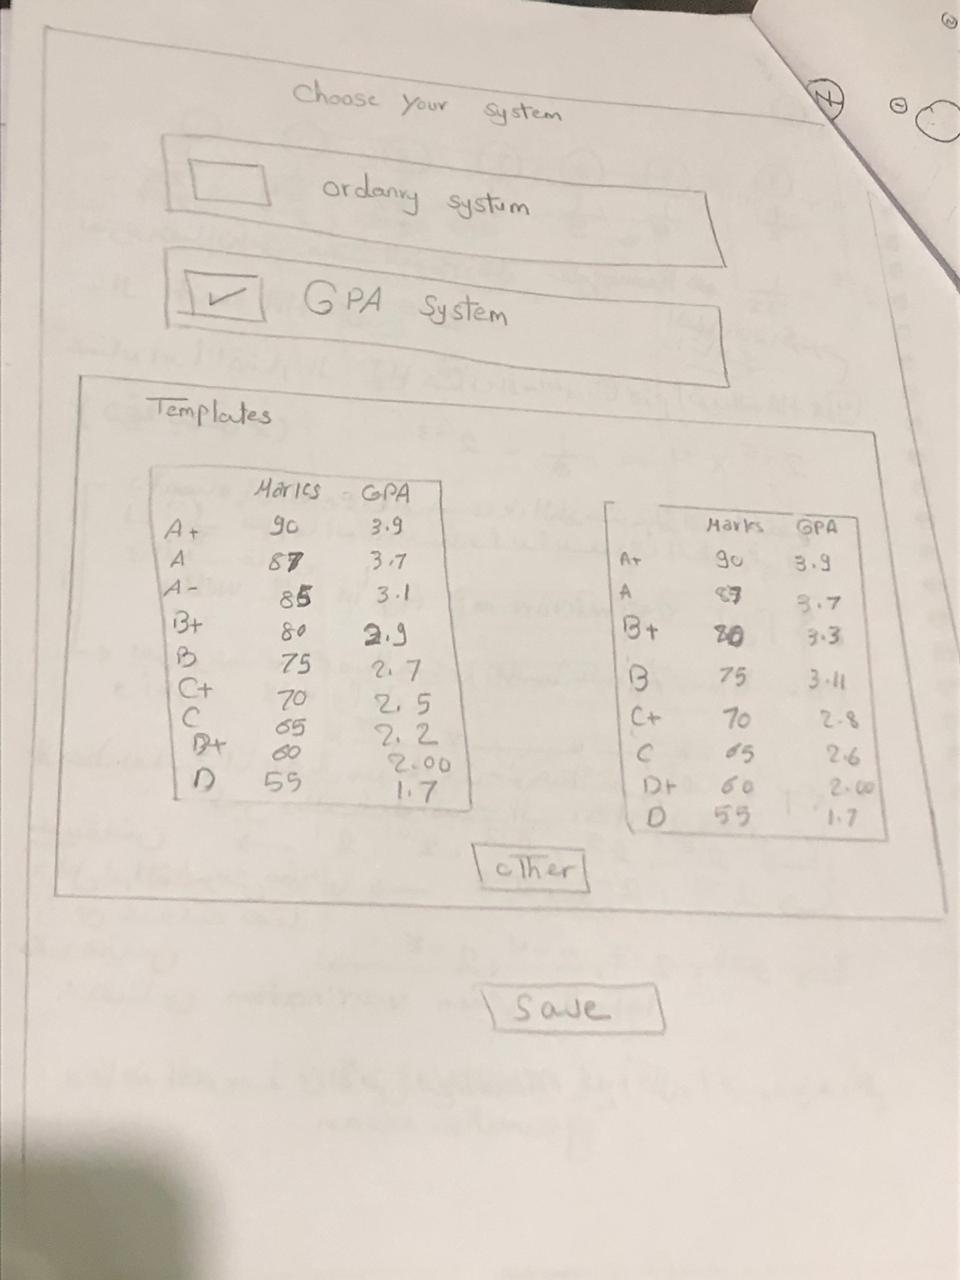 Choose your system
ordanry systum
GPA System
Templates
Marks GPA
A+ 90 3.9
A 87 3.7
A- 85 3.1
B+ 80 2.9
B 75 2.7
C+ 70 2.5
C 65 2.2
D+ 60 2.00
D 55 1.7
Marks GPA
A+ 90 3.9
A 87 3.7
B+ 80 3.3
B 75 3.11
C+ 70 2.8
C 65 2.6
D+ 60 2.00
D 55 1.7
other
Save